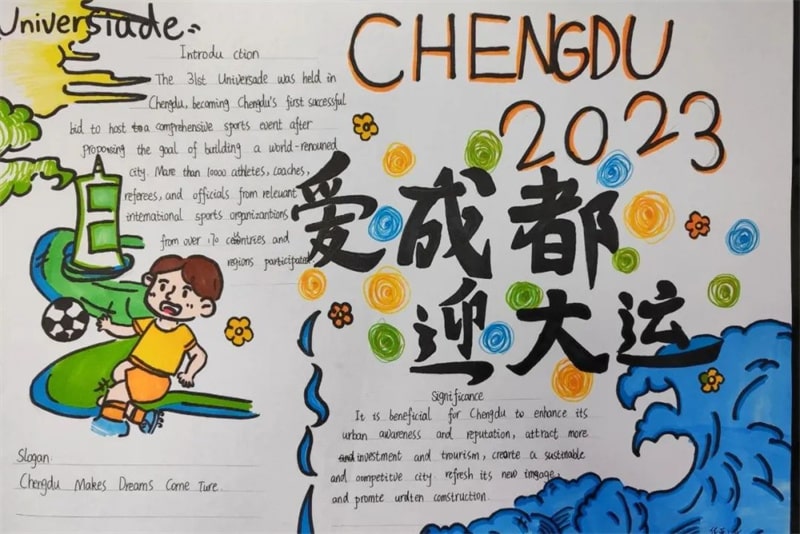 Universiade
CHENGDU
2023
Introdu ction
The 31st Universade was held in
Chengdu, becoming Chengdu's first successful
bid to host a comprehensive sports event after
proposing the goal of building a world-renouned
city. More than 10000 athletes, coaches,
referees, and officials from relevant
international sports organizantions
from over 170 countries and
regions participated.
爱成都
迎大运
Significance
It is beneficial for Chengdu to enhance its
urban awareness and reputation, attract more
investment and tourism, create a sustinable
and competitve city refresh its new image,
and promte construction.
Slogan:
Chengdu Makes Dreams Come Ture.